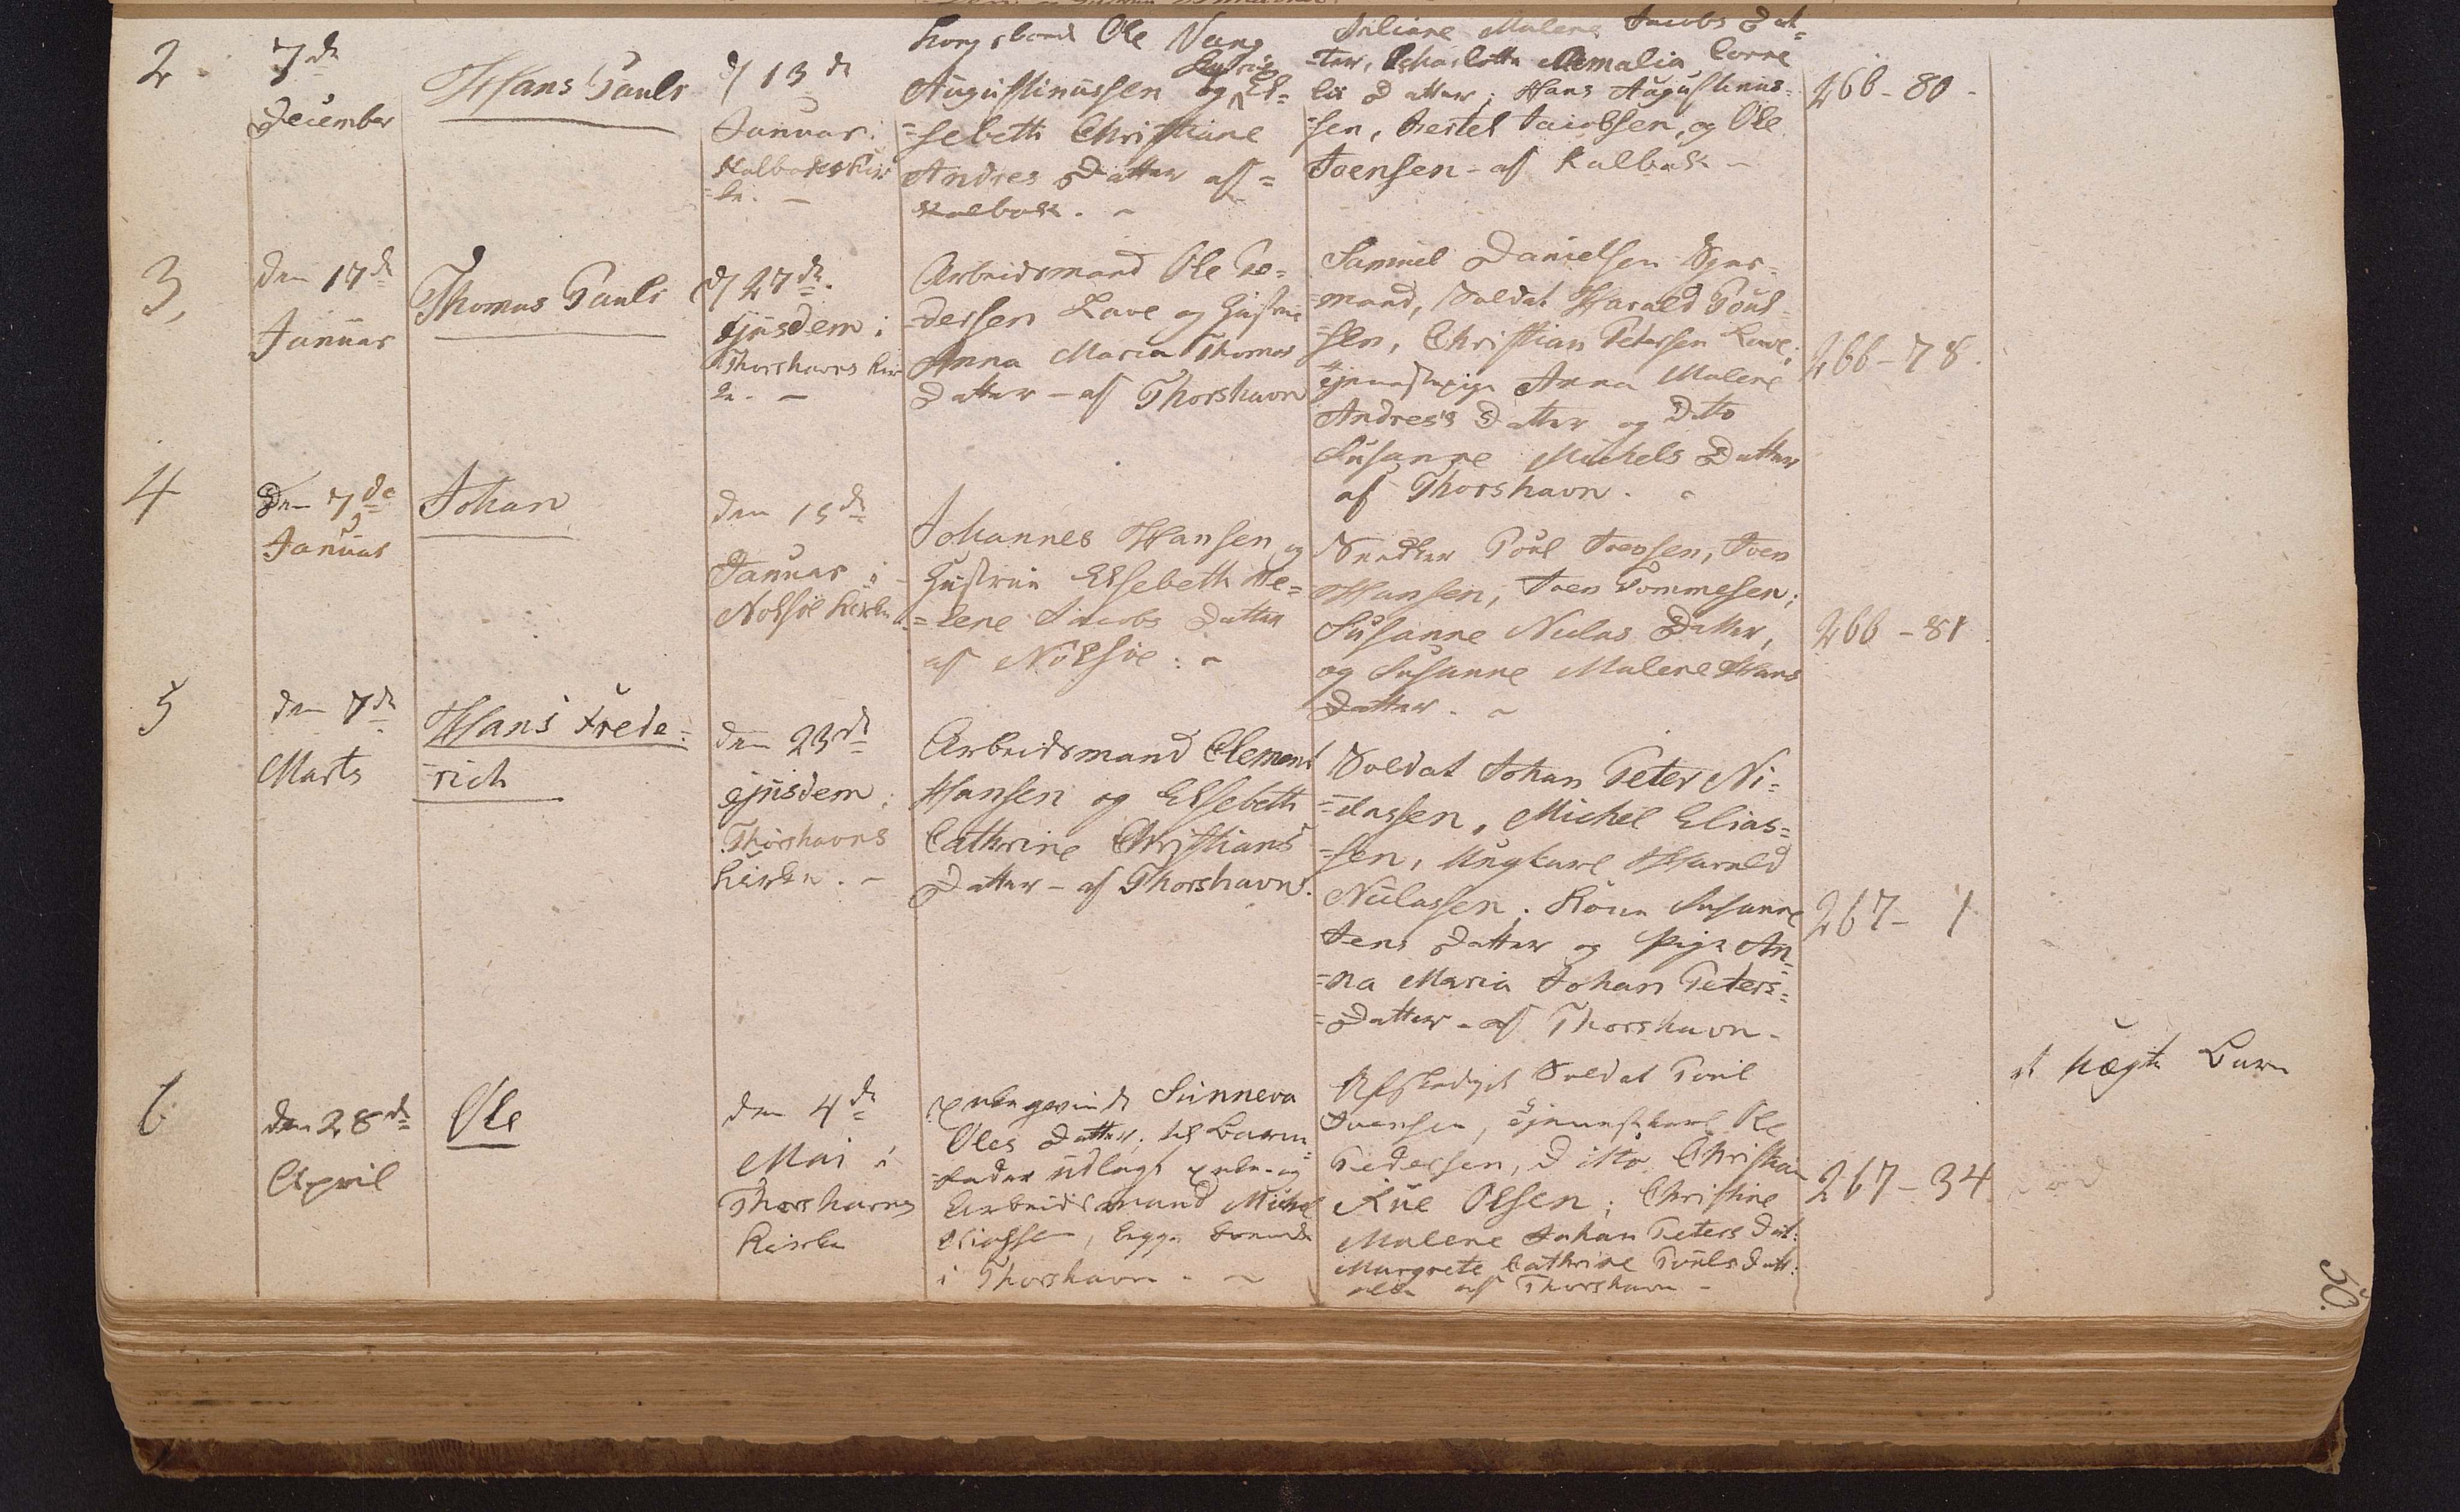 2.
7de
December
Hans Pauls
d/ 13de
Januar i
Kalbaks Kir
=ke. –
Kongsbonde Ole Vang
Hustrue
Augustinussen og El=
=sebeth Christiane
Andres Datter af =
Kalbak. –
Juliane Malene Jacobs Dat=
=ter, Charlotte Amalia Corne
lii Datter; Hans Augustinus=
=sen, Jacobsen, og Ole
Joensen – af Kalbak –
266 – 80 –
3,
den 17de
Januar
Thomas Pauls
d/ 27de
ejusdem i
Thorshavns Kir
ke. –
Arbeidsmand Ole Pe=
=dersen Lave og Hustrue
Anna Maria Thomas
Datter – af Thorshavn
Samuel Danielsen
=mand, Soldat Harald Poul=
=sen, Christian Petersen Lave;
Tjenestepige Anna Malene
Andres's Datter og Dito
Susanne Michels Datter
af Thorshavn.
266 – 78.
4
Den 7de
Januar
Johan
den 15de
Januar i
Nolsöe Kirke
Johannes Hansen og
Hustrue Elsebeth He=
=lene Jacobs Datter
af Nolsöe. –
Snedker Poul Joensen, Joen
Hansen, Joen Tommesen;
Susanne Niclas Datter,
og Susanne Malene Hans
Datter. –
266 – 81
5
den 7de
Marts
Hans Frede=
=rich
den 23de
ejusdem i
Thorshavns
Kirke. –
Arbeidsmand Clement
Hansen og Elsebeth
Cathrine Christians
Datter – af Thorshavn.
Soldat Johan Peter Ni=
=classen, Michel Elias=
=sen, Ungkarl Harald
Niclassen; Kone Susanne
Jens Datter og Pige An=
=na Maria Johan Peters=
=Datter – af Thorshavn –
267 – 1
6
den 28de
April
Ole
den 4de
Mai i
Thorshavns
Kirke
Sunneva
Oles Datter; til Barne
=fader udlagt og
Arbeidsmand Michel
Eliassen, begge boende
i Thorshavn. –
Afskediget Soldat Poul
Joensen, Tjenestekarl Ole
Pedersen, Ditto Christian
Rue Olsen; Christine
Malene Johan Peters Dat:
Margrete Cathrine Pouls Datt:
alle af Thorshavn –
267 – 34
et uægte Barn
död
50.